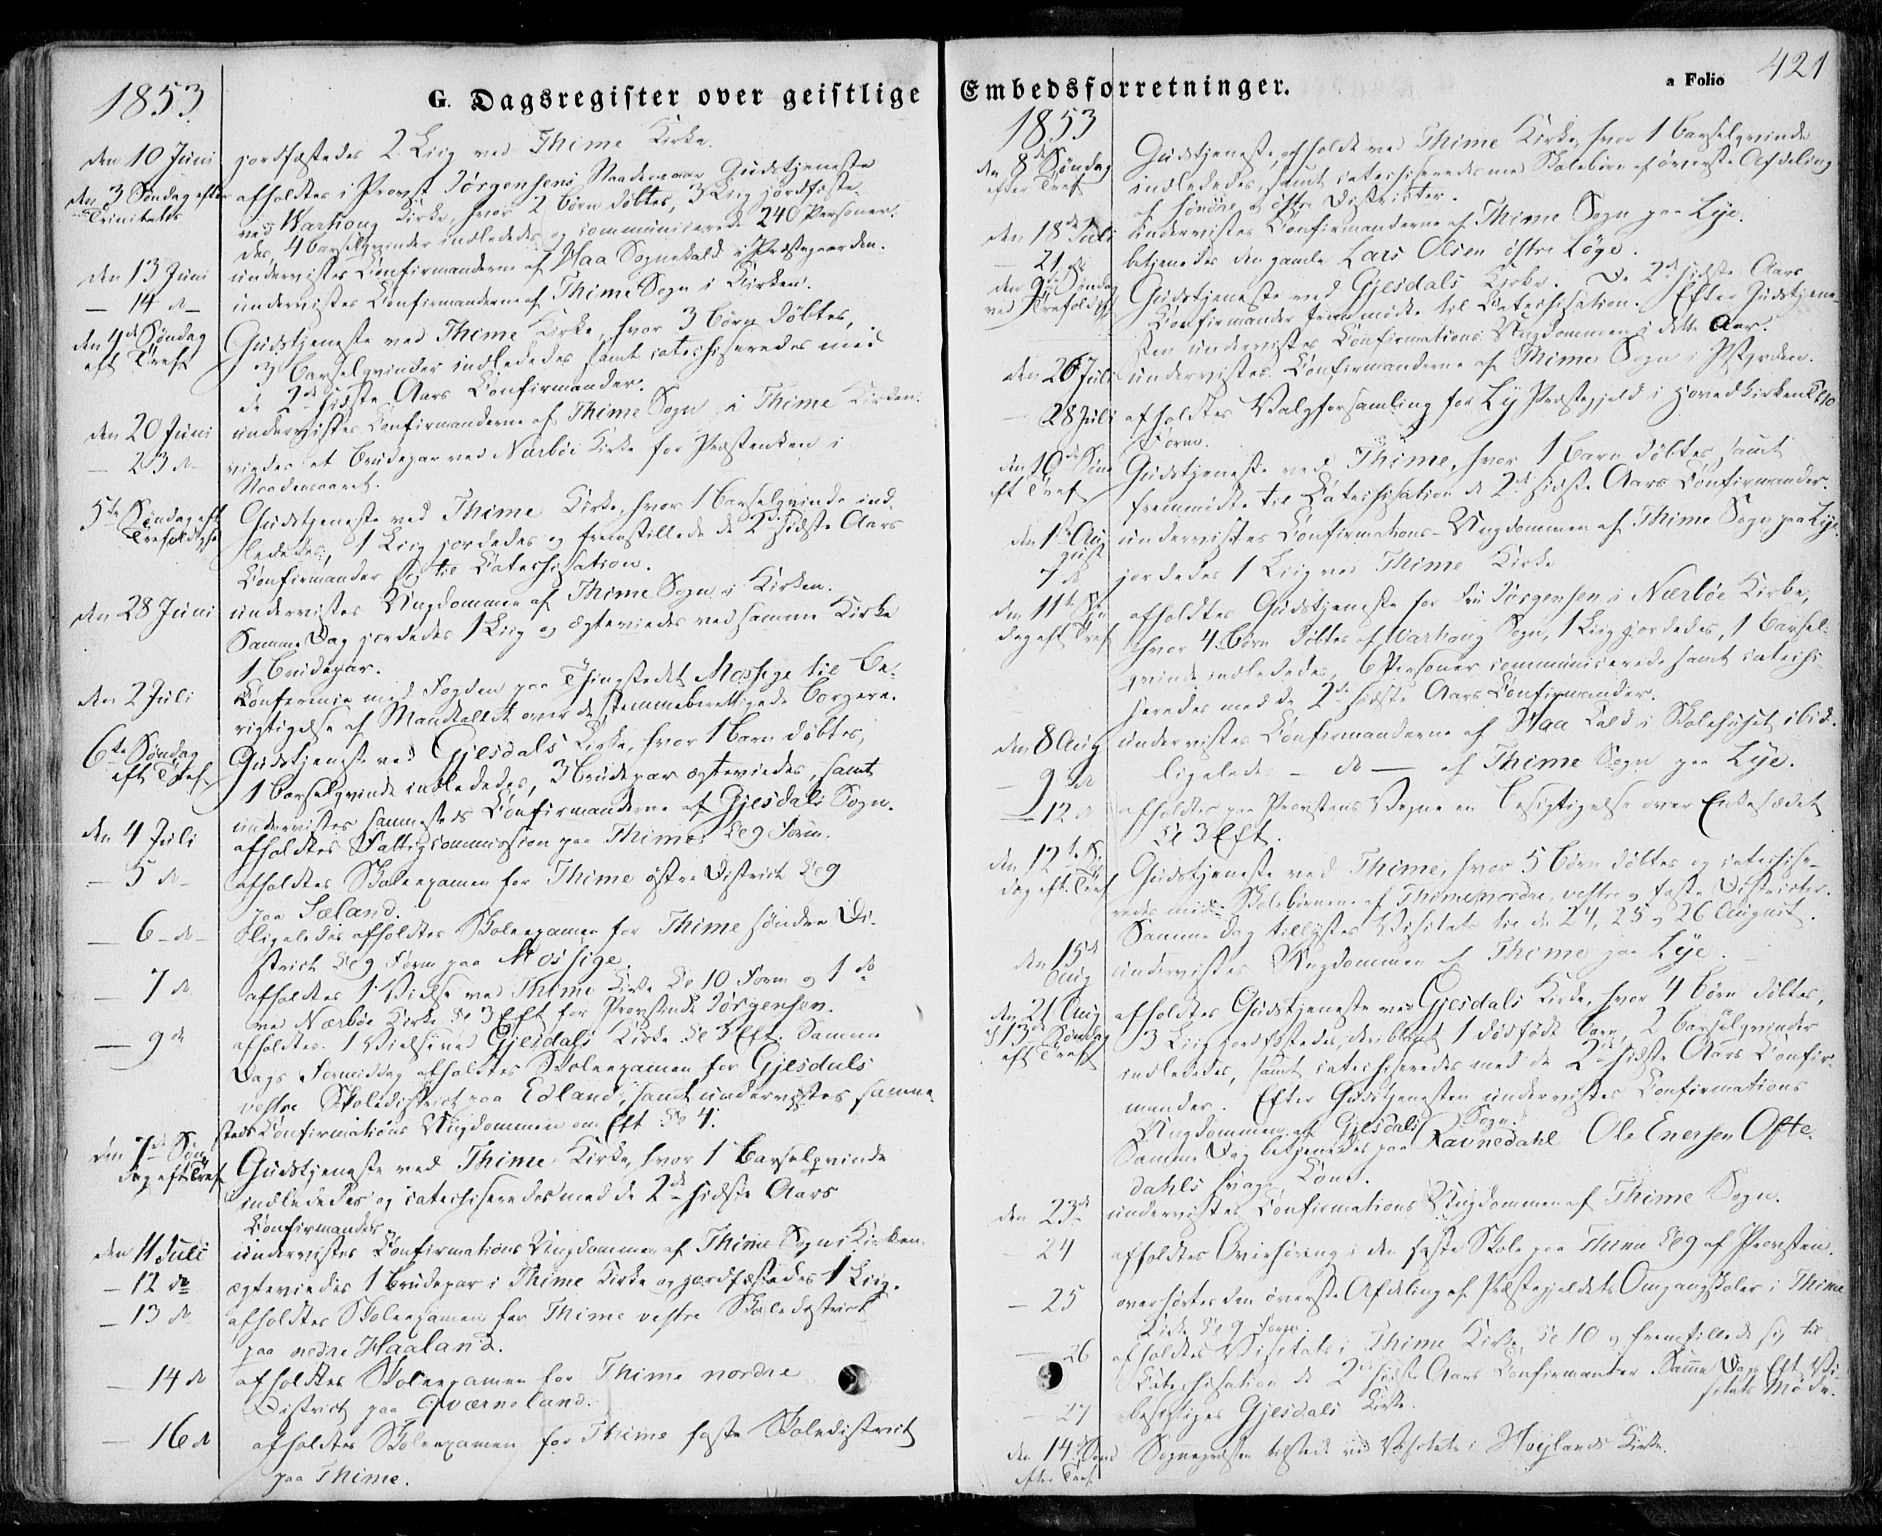 421
a Folio
G. Dagsregister over geistlige Embedsforretninger.
1853
den 10 Juni jordfæstedes 2 Liig ved Thime Kirke.
den 3 Søndag efter Trinitatis afholdtes i Provst Jørgensens Naadensaar Gudstjeneste
ved Warhoug Kirke, hvor 2 børn døbtes, 3 Liig jordfæste-
des, 4 barselqvinder indlededes og communicerede 240 Personer.
den 13 Juni undervistes Confirmanderne af Haa Sognekald i Præstegaarden.
— 14 do — undervistes Confirmanderne af Thime Sogn i Kirken.
den 4de Søndag eft Tref Gudstjeneste ved Thime Kirke, hvor 3 børn døbtes,
3 barselqvinder indlededes samt catechiseredes med
de 2de sidste Aars Confirmander.
den 20 Juni undervistes Confirmanderne af Thime Sogn i Thime Kirken.
— 23 do — viedes et brudepar ved Nærbøe Kirke for Præsteenken i
Naadensaaret.
5te Søndag eft Trefoldighed Gudstjeneste ved Thime Kirke, hvor 1 barselqvinde ind-
lededes, 1 Liig jordedes og fremstillede de 2de sidste Aars
Confirmander sig til Catechisation.
den 28 Juni undervistes Ungdommen af Thime Sogn i Kirken.
Samme Dag jordedes 1 Liig og ægteviedes ved samme Kirke
1 brudepar.
den 2 Juli Conference med Fogden paa Thingstedet Mossige til be-
rigtigelse af Mandtallet over de stemmeberettigede borgere.
6te Søndag eft Tref Gudstjeneste ved Gjesdals Kirke, hvor 1 barn døbtes,
1 barselqvinde indlededes, 3 brudepar ægteviedes, samt
undervistes sammesteds Confirmanderne af Gjesdals Sogn.
den 4 Juli afholdtes Fattigcommission paa Thime Kl 9 Form.
— 5 do — afholdtes Skoleexamen for Thime østre District Kl 9
paa Sæland.
— 6 do — ligeledes afholdtes Skoleexamen for Thime søndre Di-
strict Kl 9 Form paa Mossige
— 7 do afholdtes 1 Vielse ved Thime Kirke Kl 10 Form og 1 do
ved Nærbøe Kirke Kl 3 Eft for Provstinde Jørgensen.
— 9 do afholdtes 1 Vielse ved Gjesdals Kirke Kl 3 Eft. Samme
Dags Formiddag afholdtes Skoleexamen for Gjesdals
vestre Skoledistrict paa Edland, samt undervistes samme-
steds Confirmations Ungdommen om Eft Kl 4.
den 7de Søndag eft Tref Gudstjeneste ved Thime Kirke, hvor 1 barselqvinde
indlededes og catechiseredes med de 2de sidste Aars
Confirmander
den 11 Juli undervistes Confirmations Ungdommen af Thime Sogn i Kirken.
— 12 do ægteviedes 1 brudepar i Thime Kirke og jordfæstedes 1 Liig.
— 13 do afholdtes Skoleexamen for Thime vestre Skoledistrict
paa nedre Haaland.
— 14 do afholdtes Skoleexamen for Thime nordre
District paa Qværneland.
— 16 do afholdtes Skoleexamen for Thime faste Skoledistrict
paa Thime.
1853
den 8de Søndag efter Tref Gudstjeneste afholdt ved Thime Kirke, hvor 1 barselqvinde
indlededes, samt catechiseredes med Skolebørn af øverste Afdeling
af søndre og østre Districter.
den 18de Juli undervistes Confirmanderne af Thime Sogn paa Lye.
— 21 do betjenedes den gamle Lars Olsen østre Løge.
den 9de Søndag ved Trefoldigh Gudstjeneste ved Gjesdals Kirke. De 2de sidste Aars
Confirmander fremmødte til Catechisation. Efter Gudstjene-
sten undervistes Confirmations Ungdommen i dette Aar.
den 26 Juli undervistes Confirmanderne af Thime Sogn i
— 28 Juli afholdtes Valgforsamling for Ly Præstegjeld i Hovedkirken Kl 10
Form.
den 10de Sønd eft Tref Gudstjeneste ved Thime, hvor 1 barn døbtes, samt
fremmødte til Catechisation de 2de sidste Aars Confirmander.
den 1ste August undervistes Confirmations-Ungdommen af Thime Sogn paa Lye.
7 do jordedes 1 Liig ved Thime Kirke
den 11te Søndag eft Tref afholdtes Gudstjeneste for Fru Jørgensen i Nærbøe Kirke,
hvor 4 børn døbtes af Warhoug Sogn, 1 Liig jordedes, 1 barsel-
qvinde indlededes, 6 Personer communicerede samt catechi-
seredes med de 2de sidste Aars Confirmander.
den 8 Aug undervistes Confirmanderne af Haa Kald i Skolehuset ibid.
— 9 do ligeledes — do — af Thime Sogn paa Lye.
— 12 do afholdtes paa Provstens Vegne en besigtigelse over Enkesædet
Kl 3 Eft.
den 12te Søndag eft Tref Gudstjeneste ved Thime, hvor 5 børn døbtes og catechise-
redes med Skolebørnene af Thime nordre, vestre og faste Districter.
Samme Dag tillystes Visitats til de 24, 25 og 26 August.
den 15de Aug undervistes Ungdommen af Thime paa Lye.
den 21 Aug 13de Søndag eft Tref afholdtes Gudstjeneste ved Gjesdals Kirke, hvor 4 børn døbtes,
3 Liig jordfæstedes, deriblandt 1 dødfødt barn, 2 barselqvinder
indlededes, samt catechiseredes med de 2de sidste Aars Confir-
mander. Efter Gudstjenesten undervistes Confirmations
Ungdommen af Gjesdals Sogn.
Samme Dag betjenedes paa Ravnedahl Ole Enersen Ofte-
dahls svage Kone.
den 23de undervistes Confirmations Ungdommen af Thime Sogn.
— 24 afholdtes Overhøring i den faste Skole paa Thime Kl 9 af Provsten.
— 25 overhørtes den øverste Afdeling af Præstegjeldets Omgangsskoler i Thime
Kirke Kl 9 Form.
— 26 afholdtes Visitats i Thime Kirke Kl 10 og fremstillede sig til
Catechisation de 2de sidste Aars Confirmander. Samme Dags Eft Vi-
sitats Møde.
— 27 besigtiges Gjesdals Kirke.
den 14de Sønd efter Tref Sognepræsten tilstede ved Visitats i Høylands Kirke.